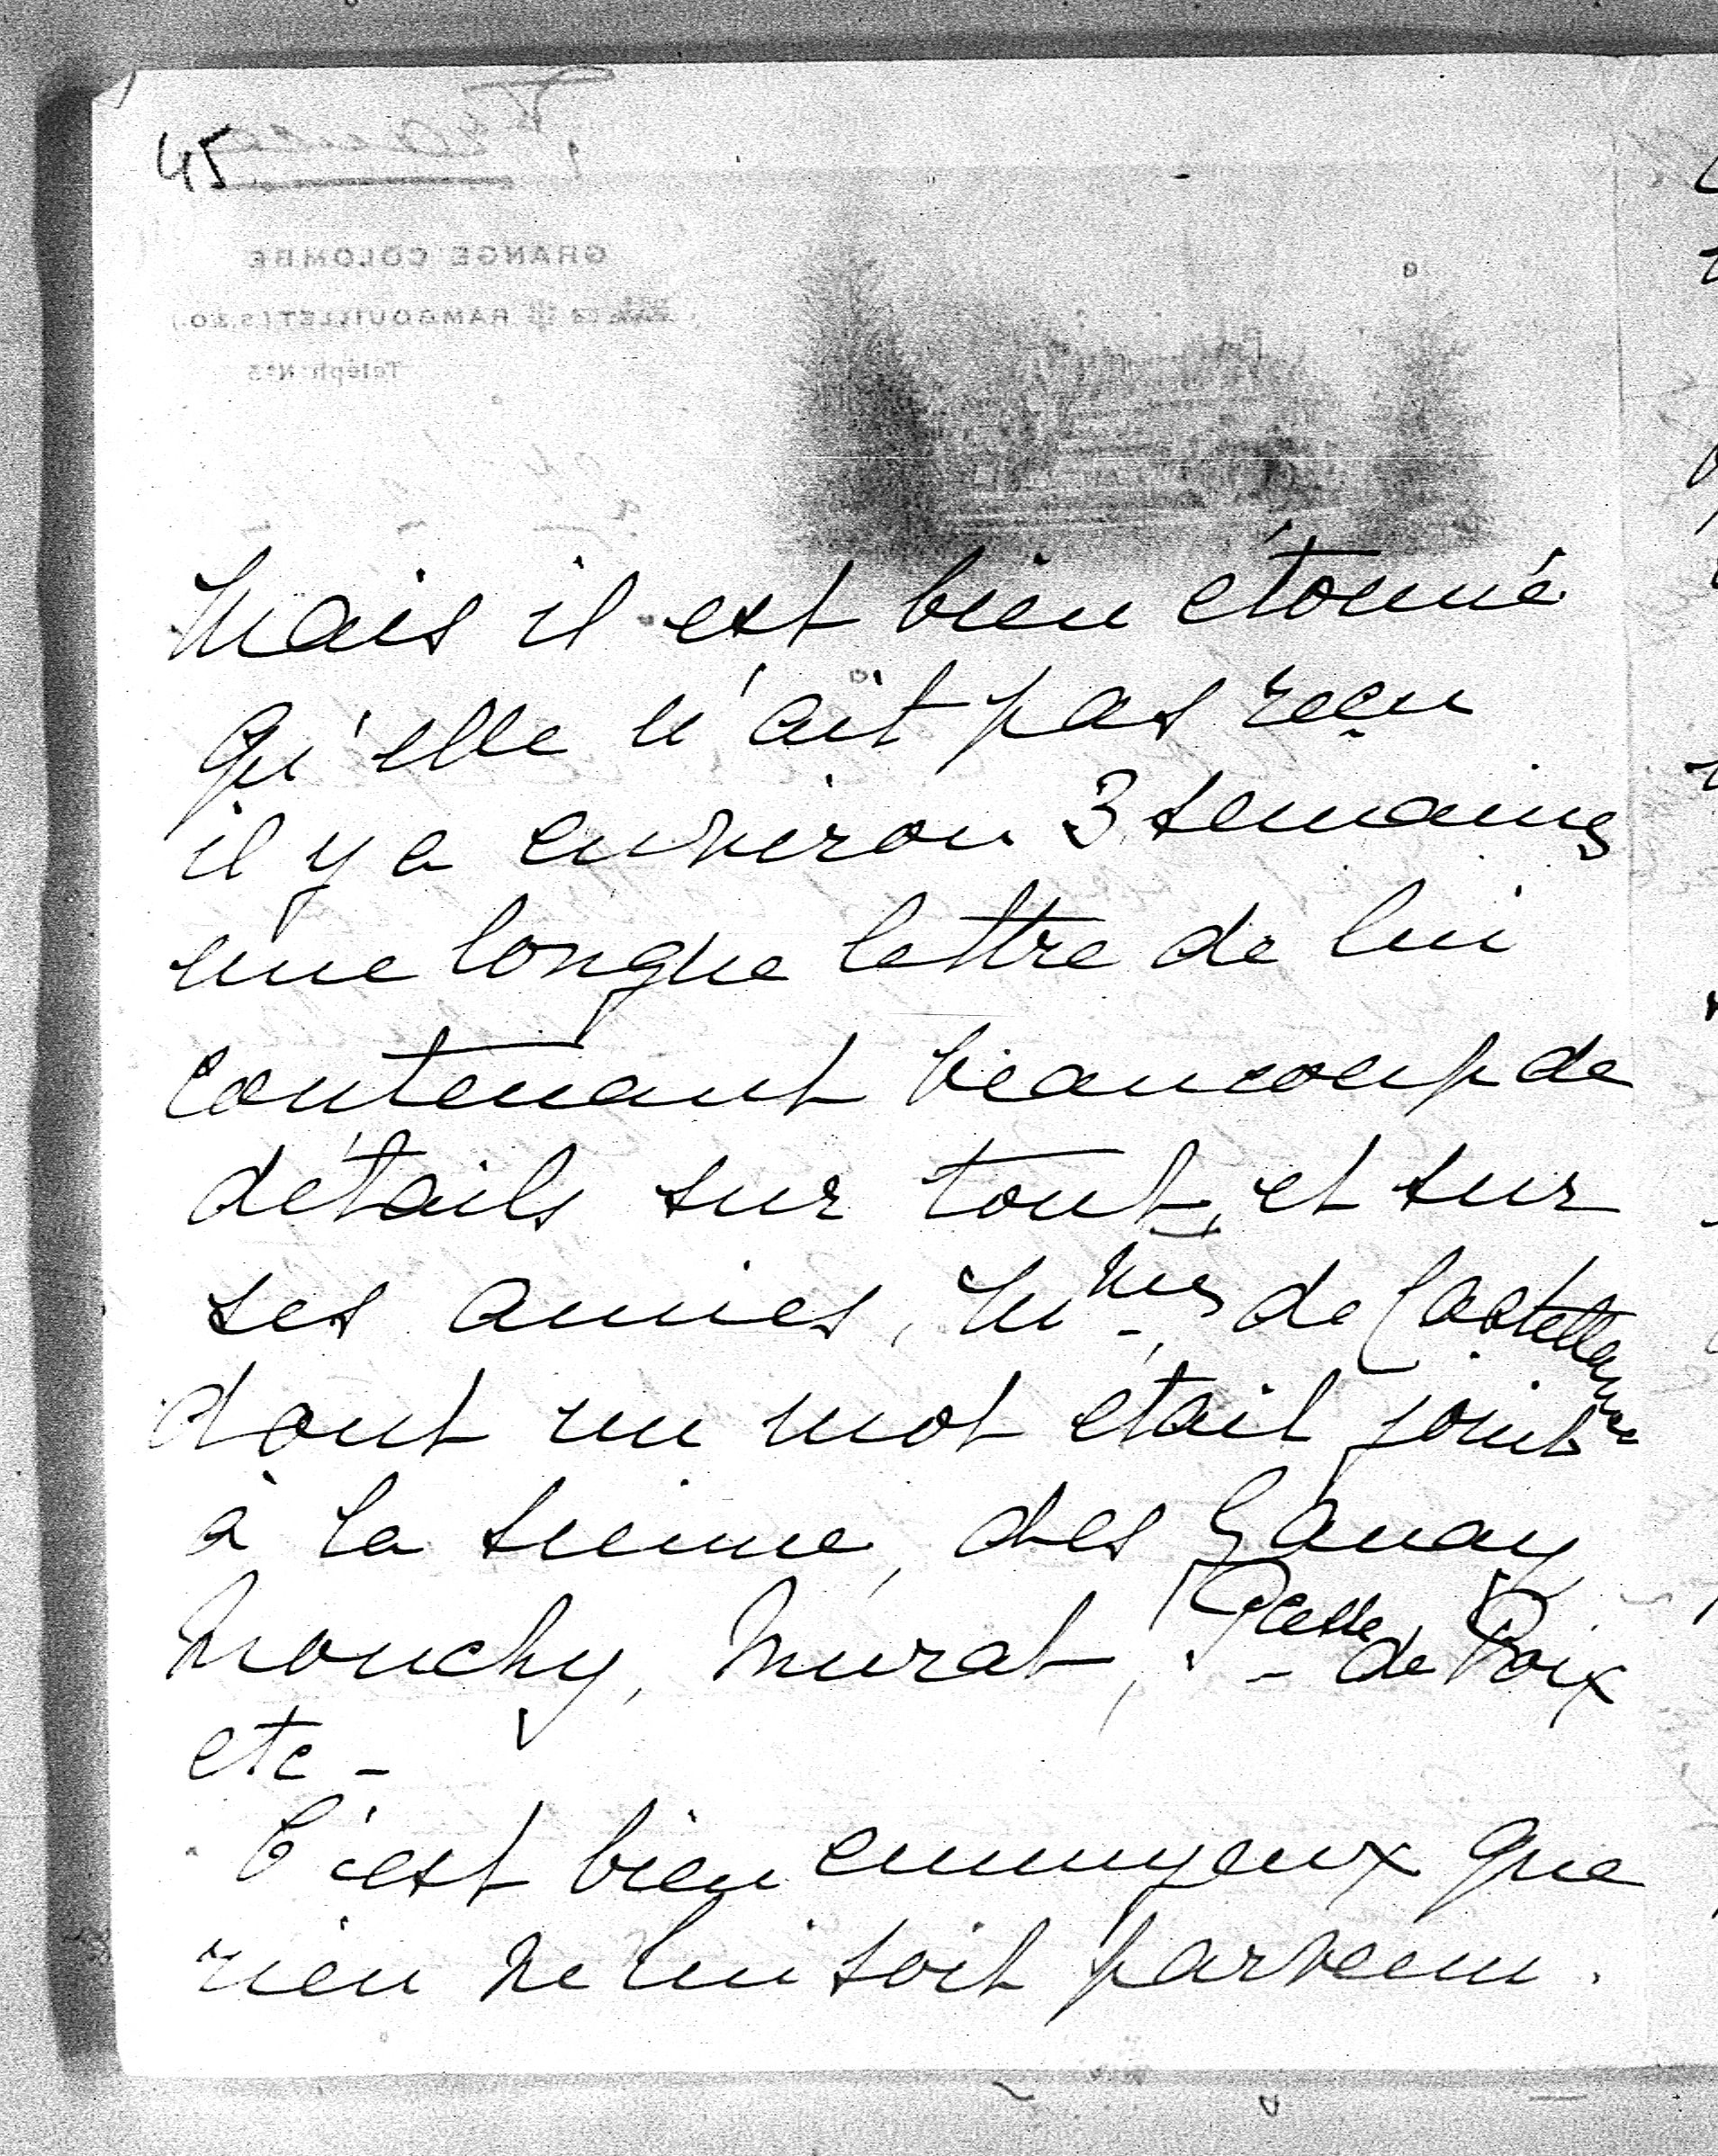 45
France
GRANGE COLOMBE
RAMBOUILLET (S.&O.)
Téleph: N°5
Mais il est bien étonné
qu'elle n'ait pas reçu
il y a environ 3 semaines
une longue lettre de lui
contenant beaucoup de
détails sur tout, et sur
ses amies, Mmes de Castellane
dont un mot était joint
à la sienne, des Ganay
Mouchy, Murat, Pcesse de Poix
etc -
C'est bien ennuyeux que
rien ne lui soit parvenu.